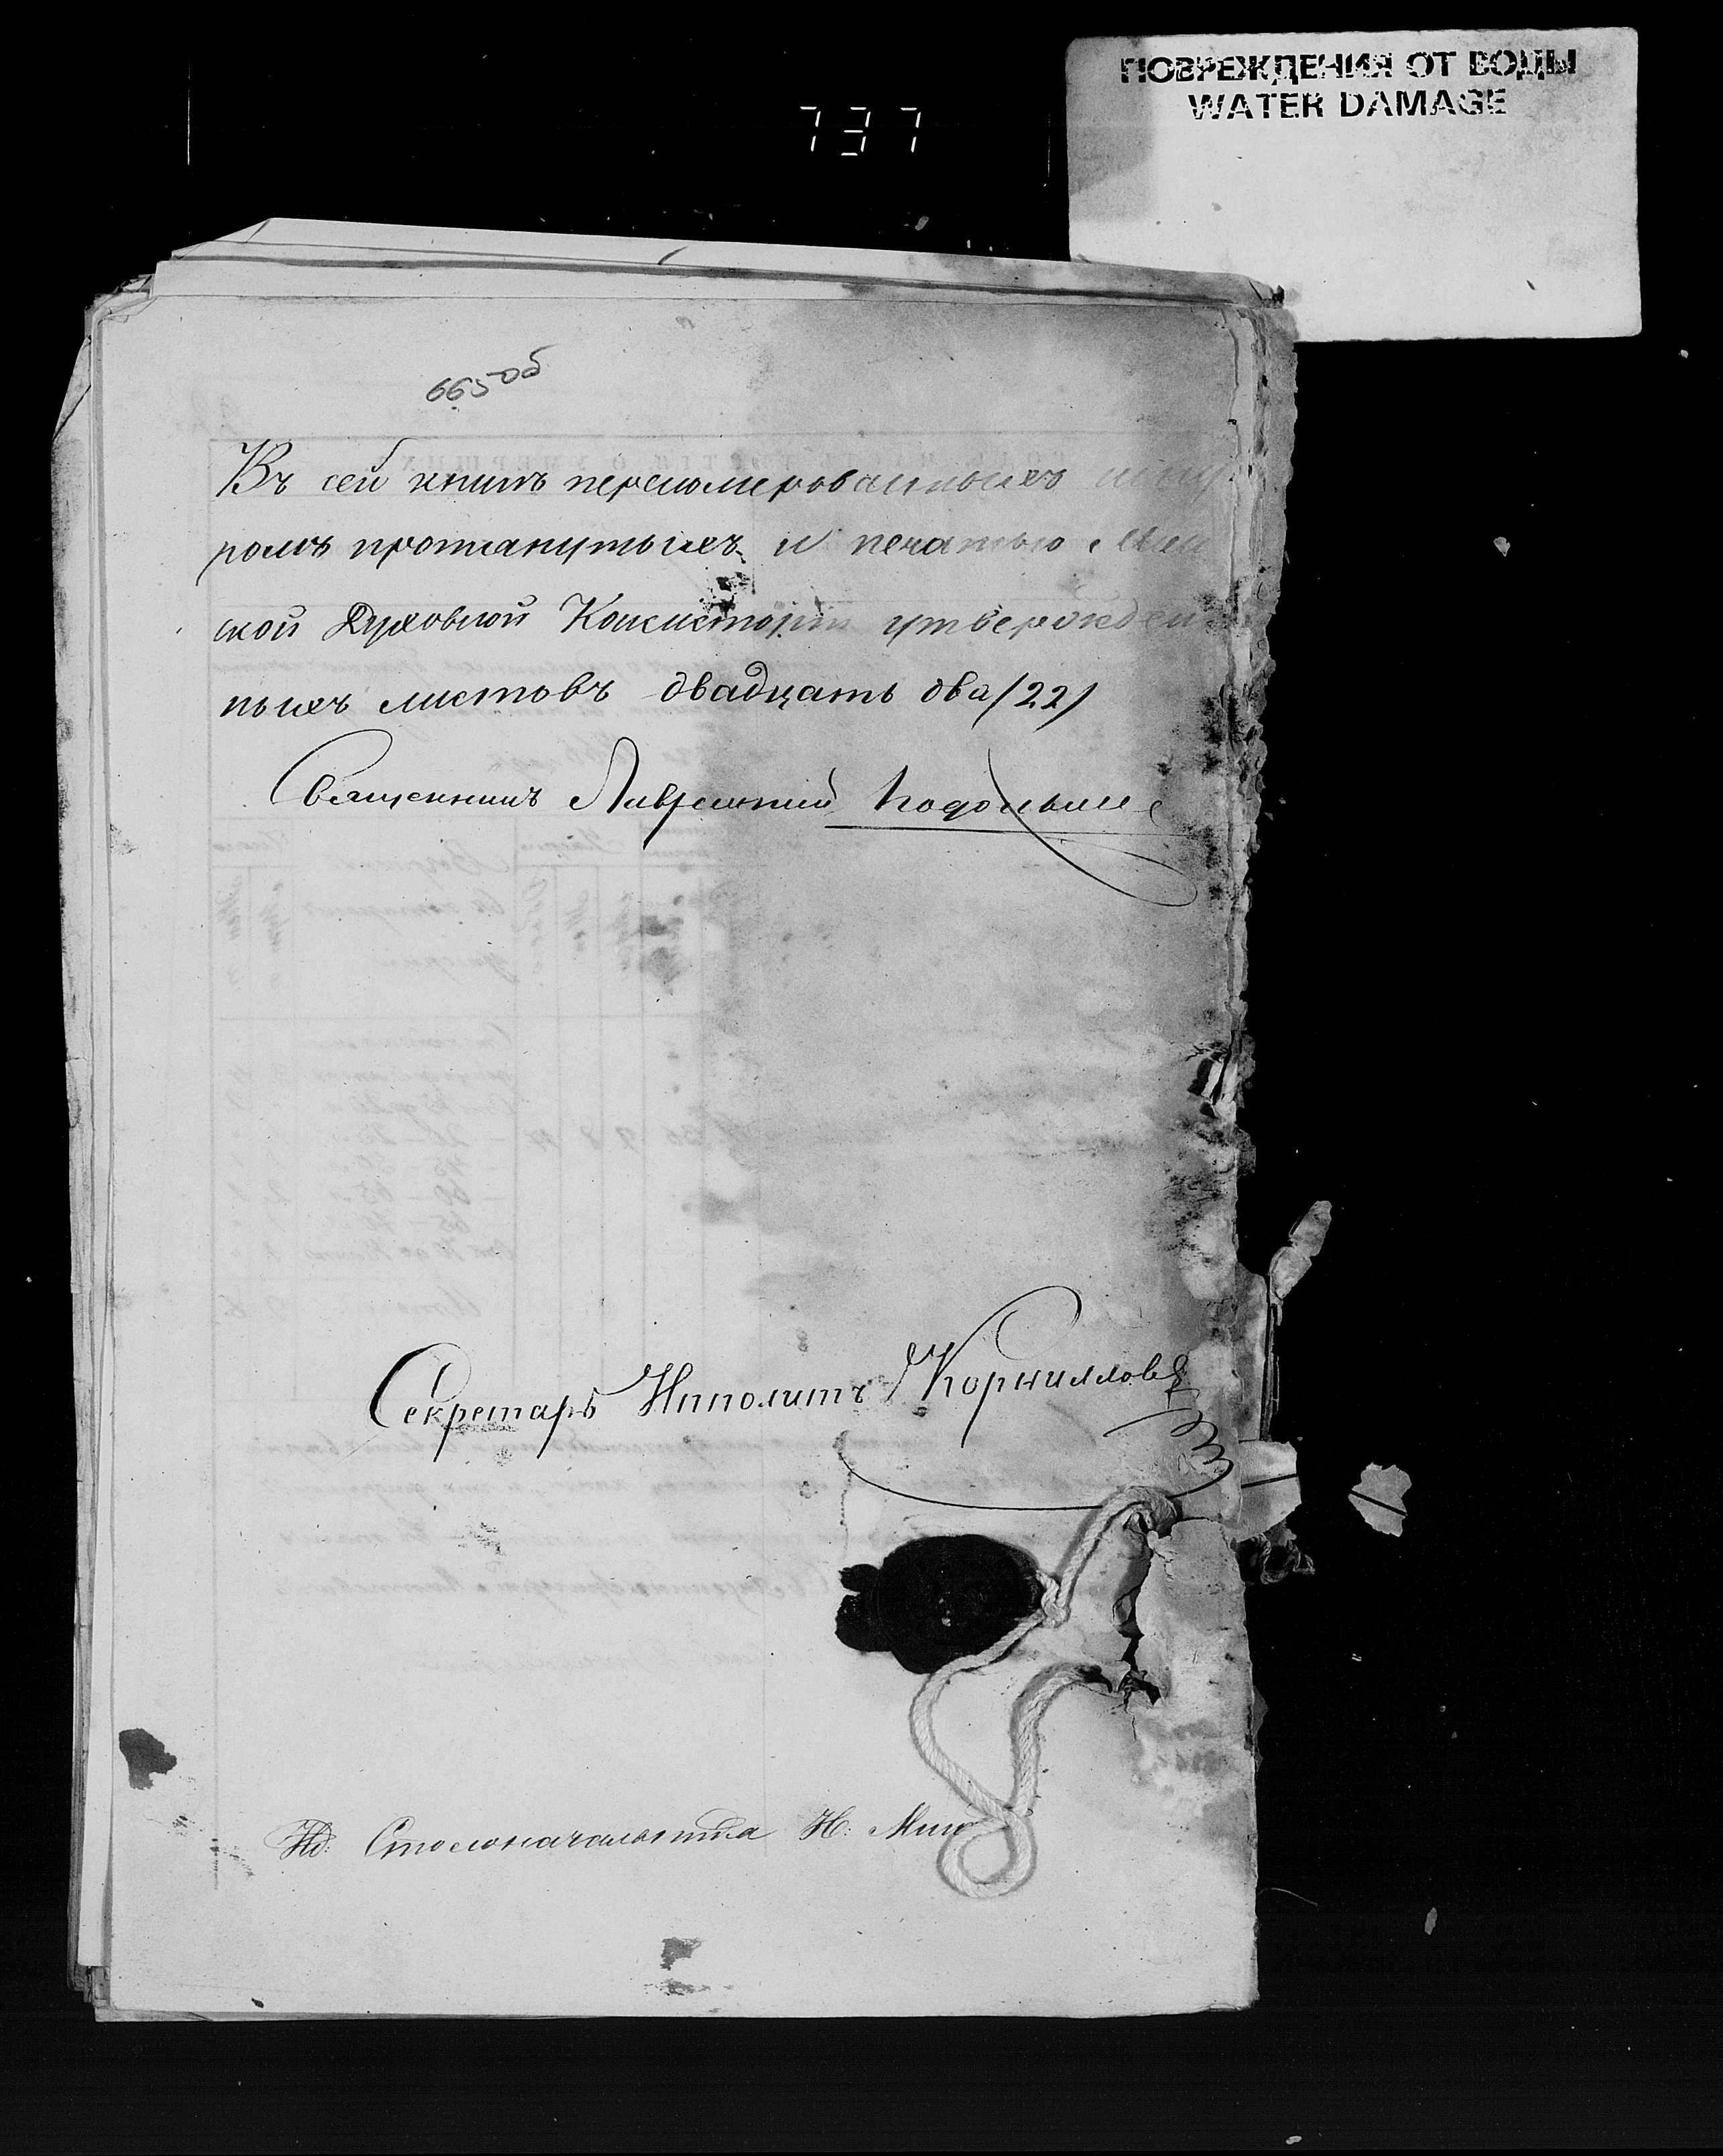 ПОВРЕЖДЕНИЯ ОТ ВОДЫ
WATER DAMAGE
737
665 об
Въ сей книгѣ перенумерованныхъ шну
ромъ протянутыхъ и печатью Мин
ской Духовной Консисторіи утвержден
ныхъ листовъ двадцать два /22/
Священникъ Лаврентій
Секретарь Ипполитъ Корниловъ
Ид. Столоначальника Н.